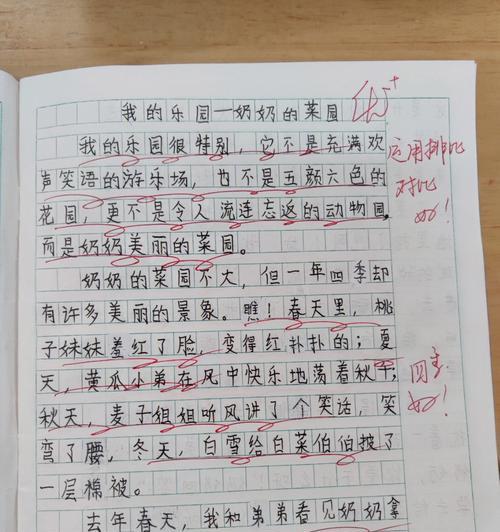 我的乐园一奶奶的菜园
优+
我的乐园很特别，它不是充满欢
声笑语的游乐场，也不是五颜六色的
花园，更不是令人流连忘返的动物园，
而是奶奶美丽的菜园。
运用排比
对比
好！
奶奶的菜园不大，但一年四季却
有许多美丽的景象。瞧！春天里，桃
子妹妹羞红了脸，变得红扑扑的；夏
天，黄瓜小弟在风中快乐地荡着秋千；
秋天，麦子姐姐听风讲了个笑话，笑
弯了腰，冬天，白雪给白菜伯伯披了
一层棉被。
好！
去年春天，我和弟弟看见奶奶拿